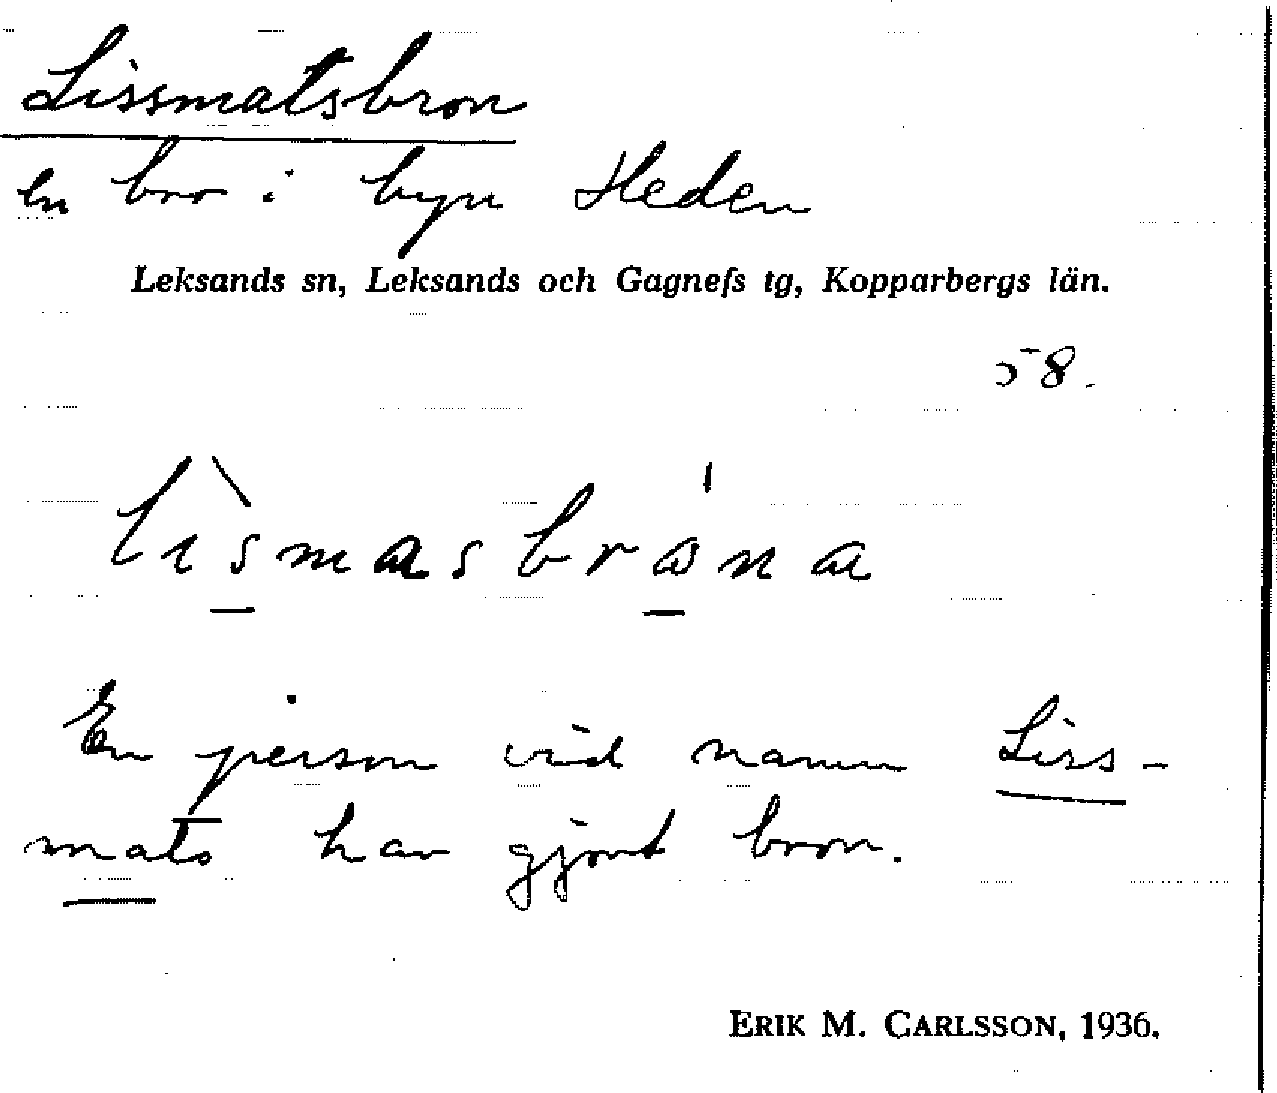 Lissmatsbron
en bro i byn Heden
Leksands sn, Leksands och Gagnefs tg, Kopparbergs län.
58.
lìsmasbrána
En person vid namn Liss-
mats har gjort bron.
ERIK M. CARLSSON, 1936.